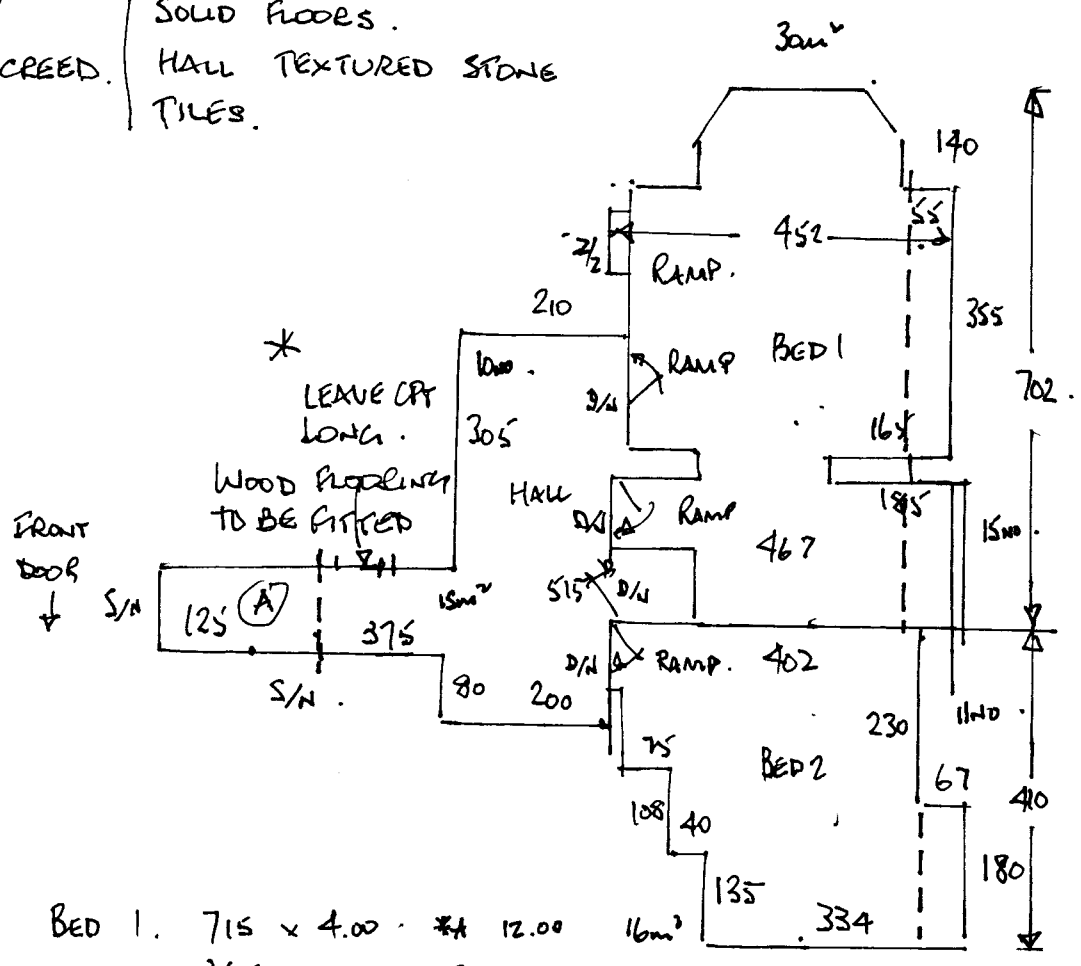 SOLID FLOORS.
CREED. HALL TEXTURED STONE
TILES.
30m²
140
55
452
2/2
RAMP.
210
355
*
10NO.
RAMP
BED 1
702.
LEAVE CPT
LONG.
D/N
305
165
WOOD FLOORING
TO BE FITTED
HALL
RAMP
185
D/N
15NO.
FRONT
DOOR
467
S/N
125
A
15m²
515
D/N
375
D/N
RAMP.
402
S/N.
80
200
230
11NO.
75
BED 2
67
410
108
40
180
135
334
BED 1. 715 x 4.00. *A 12.00 16m²